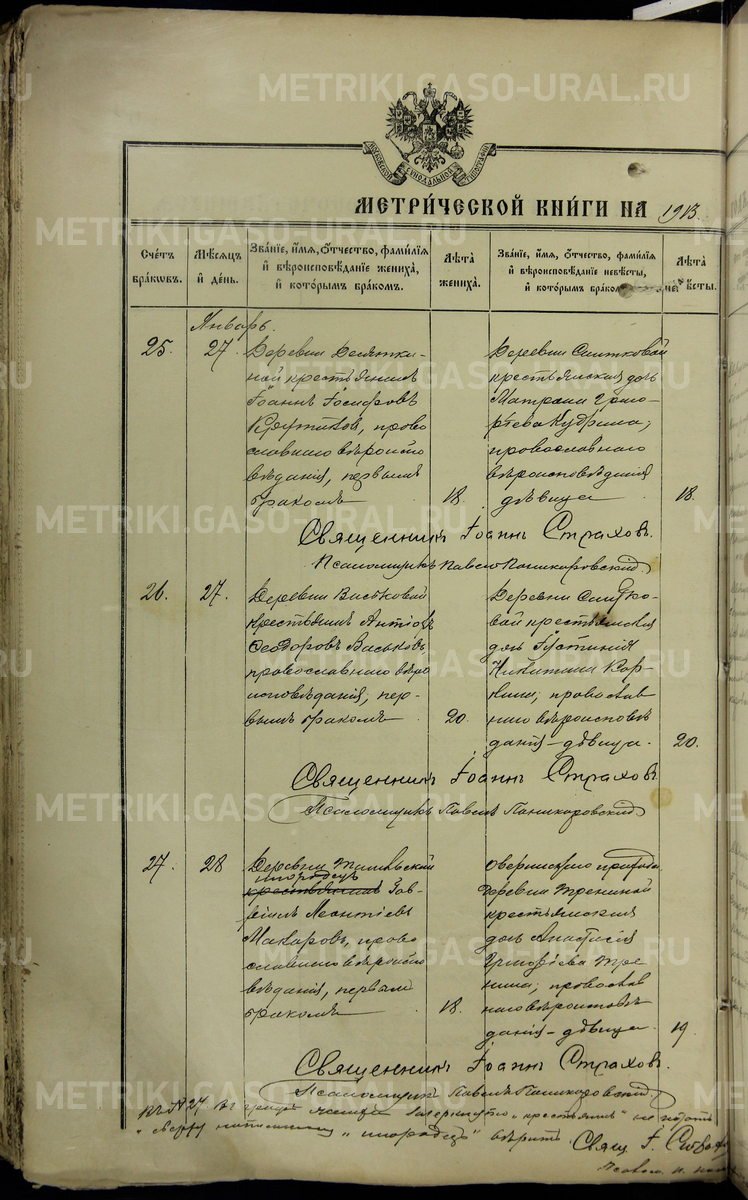 METRIKI.GASO-URAL.RU
МЕТРИ́ЧЕСКОЙ КНИ́ГИ НА 1913.
Сче́тъ бра́ковъ.
Мѣ́сяцъ и҆ де́нь.
Зва́нїе, и҆́мя, ѻ҆́тчество, фами́лїя и҆ вѣроисповѣ́данїе жениха̀, и҆ кото́рымъ бра́комъ.
Лѣ́та жениха̀.
Зва́нїе, и҆́мя, ѻ҆́тчество, фами́лїя и҆ вѣроисповѣ́данїе невѣ́сты, и҆ кото́рымъ
Лѣ́та
Январь.
25.
27.
Деревни
ной крестьянинъ
Іоаннъ Іосифовъ
Крутиковъ, право
славнаго вѣроиспо
вѣданія, первымъ
бракомъ
18.
Деревни
крестьянская дочь
Матрона Григо-
рьева Кудрина,
православнаго
вѣроисповѣданія
дѣвица
18.
Священникъ Іоаннъ Страховъ.
Псаломщикъ Павелъ
26.
27.
Деревни Васьковой
крестьянинъ
Ѳеодоровъ Васьковъ,
православнаго вѣро
исповѣданія, пер-
вымъ бракомъ
20.
Деревни
вой крестьянская
дочь Іустинія
Никитина Кор-
кина, православ
наго вѣроисповѣ
данія - дѣвица.
20.
Священникъ Іоаннъ Страховъ
Псаломщикъ Павелъ
27.
28
Деревни
инородецъ
крестьянинъ Гав-
ріилъ Леонтіевъ
Макаровъ, право
славнаго вѣроиспо
вѣданія, первымъ
бракомъ
18.
прихода
деревни Трениной
крестьянская
дочь Анастасія
Григорьева Тре
нина, православ
наго вѣроисповѣ
данія - дѣвица
19.
Священникъ Іоаннъ Страховъ.
Псаломщикъ Павелъ
Къ № 27. въ графѣ жениха зачеркнутое „крестьянинъ" не
„сверху написанному „инородецъ" вѣрить. Свящ. І.